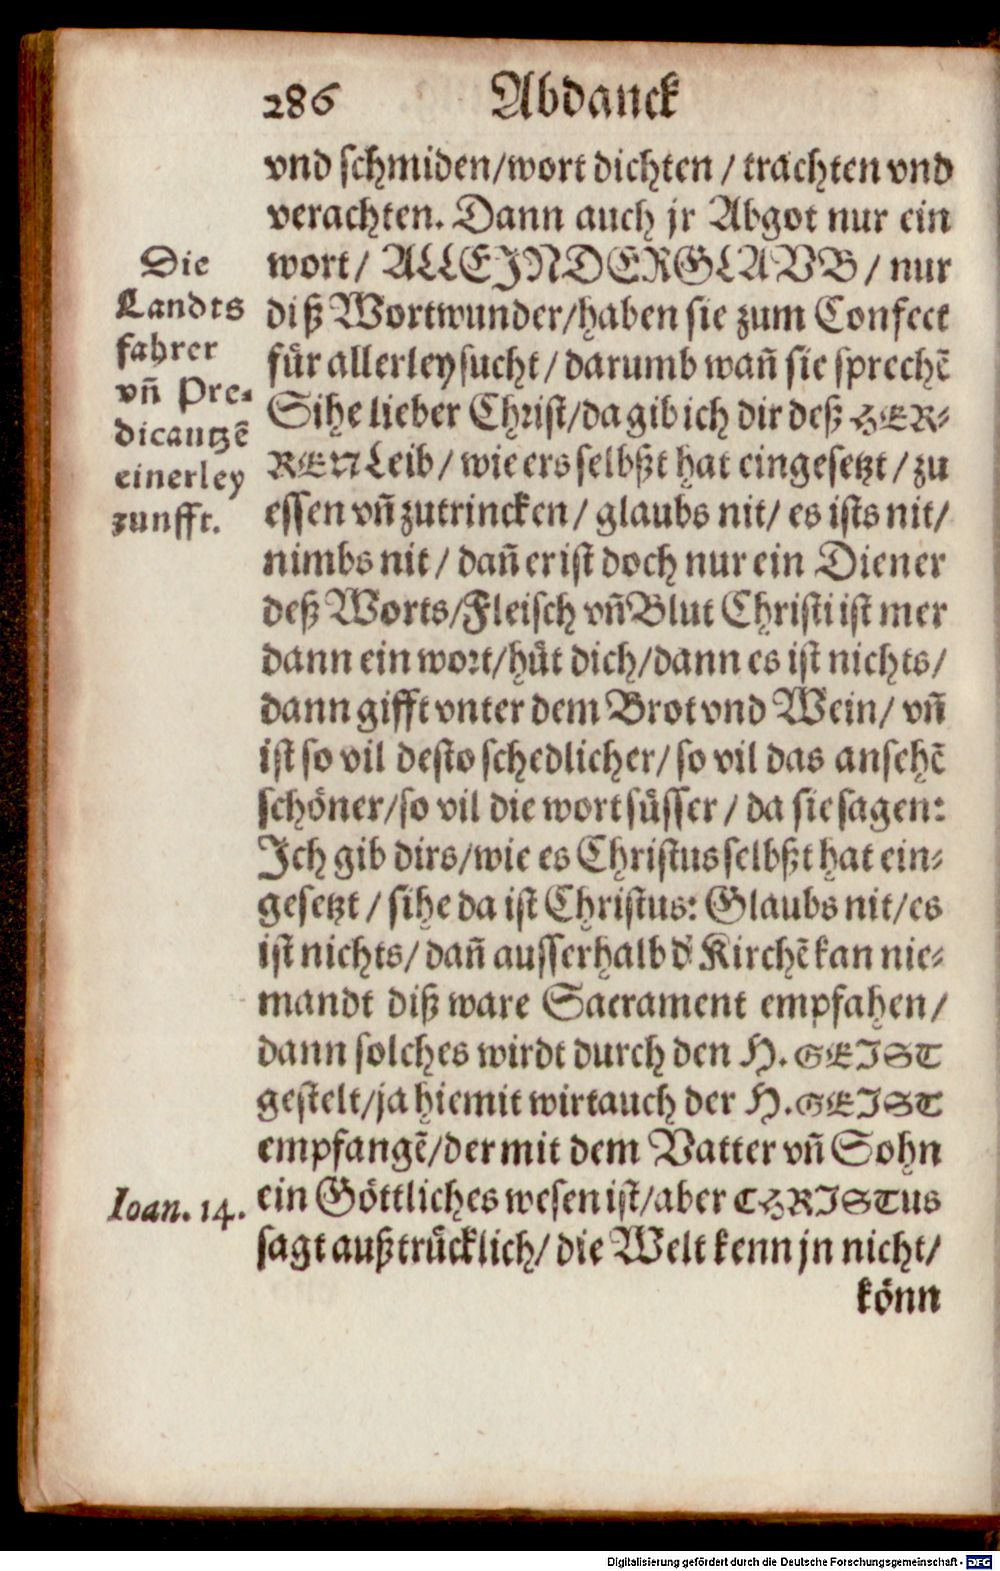 286 Abdanck
vnd schmiden/wort dichten / trachten vnd
verachten. Dann auch jr Abgot nur ein
wort/ ALLEINDERGLAVB / nur
diß Wortwunder/haben sie zum Confect
für allerley sucht/ darumb wañ sie sprechẽ
Sihe lieber Christ/da gib ich dir deß HER-
REN Leib/ wie ers selbßt hat eingesetzt/ zu
essen vñ zutrincken/ glaubs nit/ es ists nit/
nimbs nit/ dañ er ist doch nur ein Diener
deß Worts/Fleisch vñ Blut Christi ist mer
dann ein wort/hüt dich/dann es ist nichts/
dann gifft vnter dem Brot vnd Wein/ vñ
ist so vil desto schedlicher/ so vil das ansehẽ
schöner/so vil die wort süsser / da sie sagen:
Ich gib dirs/wie es Christus selbßt hat ein-
gesetzt / sihe da ist Christus: Glaubs nit/es
ist nichts/ dañ ausserhalb d' Kirchẽ kan nie-
mandt diß ware Sacrament empfahen/
dann solches wirdt durch den H. GEIST
gestelt/ja hiemit wirt auch der H. GEIST
empfangẽ/der mit dem Vatter vñ Sohn
ein Göttliches wesen ist/aber CHRISTus
sagt außtrücklich/ die Welt kenn jn nicht/
könn
Die
Landts
fahrer
vñ Pre-
dicantzẽ
einerley
zunfft.
Ioan. 14.
Digitalisierung gefördert durch die Deutsche Forschungsgemeinschaft - DFG